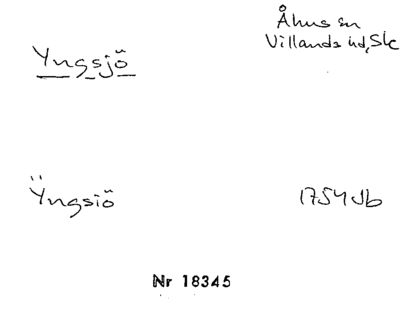 Yngsjö
Åhus sn
Villands hd, Sk
Ÿngsiö
1754 Jb
Nr 18345